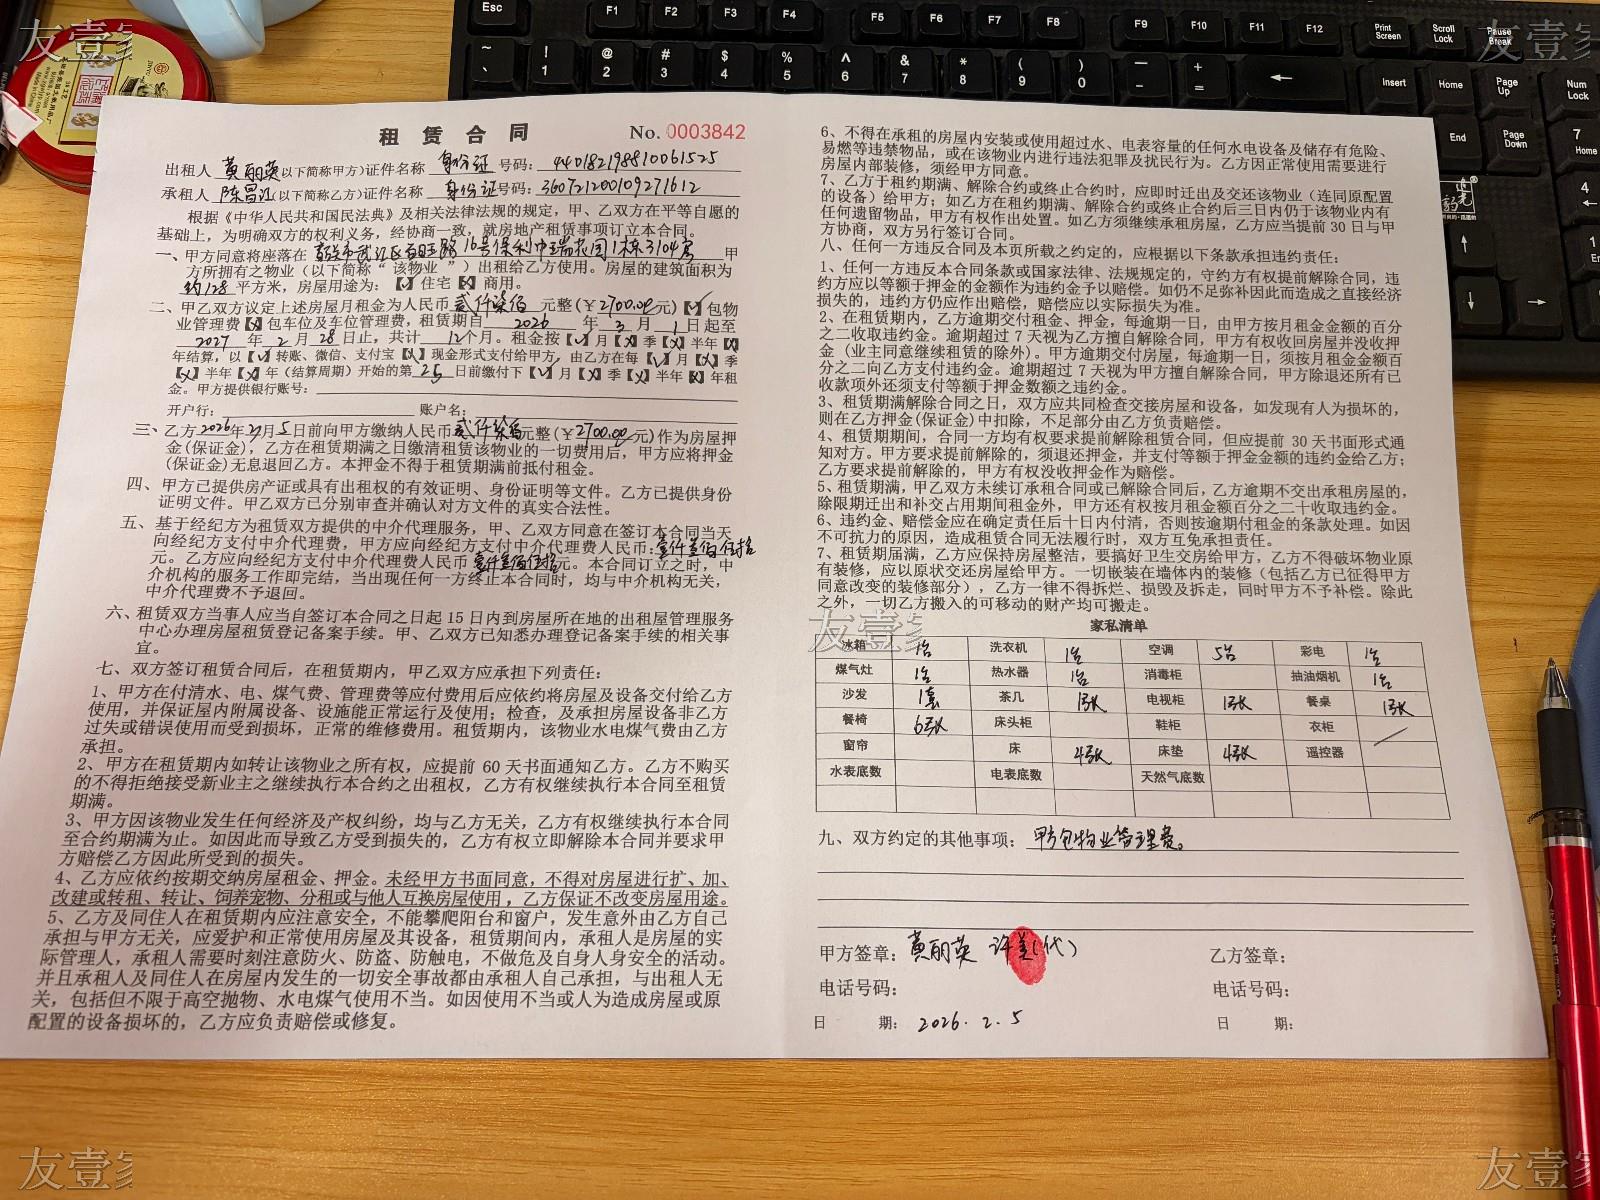 友壹家
友壹家
租 赁 合 同
No. 0003842
出租人 黄丽英 以下简称甲方)证件名称 身份证 号码: 440182198810061525
承租人 陈昌江 (以下简称乙方)证件名称 身份证号码: 360721200109271612
根据《中华人民共和国民法典》及相关法律法规的规定，甲、乙双方在平等自愿的
基础上，为明确双方的权利义务，经协商一致，就房地产租赁事项订立本合同。
一、甲方同意将座落在 武江区百旺路16号保利中瑞花园1栋3104房 甲
方所拥有之物业（以下简称“ 该物业 ”）出租给乙方使用。房屋的建筑面积为
约128 平方米，房屋用途为：【✓】住宅【✗】商用。
二、甲乙双方议定上述房屋月租金为人民币 贰仟柒佰 元整(￥2700.00元)【✓】包物
业管理费【✗】包车位及车位管理费，租赁期自 2026 年 3 月 1 日起至
2027 年 2 月 28 日止，共计 12个月。租金按【✓】月【✗】季【✗】半年【✗】
年结算，以【✓】转账、微信、支付宝【✓】现金形式支付给甲方，由乙方在每【✓】月【✗】季
【✗】半年【✗】年（结算周期）开始的第 25 日前缴付下【✓】月【✗】季【✗】半年【✗】年租
金。甲方提供银行账号：
开户行： 账户名：
三、乙方2026年2月5日前向甲方缴纳人民币 贰仟柒佰元整(￥2700.00元)作为房屋押
金(保证金)，乙方在租赁期满之日缴清租赁该物业的一切费用后，甲方应将押金
(保证金)无息退回乙方。本押金不得于租赁期满前抵付租金。
四、甲方已提供房产证或具有出租权的有效证明、身份证明等文件。乙方已提供身份
证明文件。甲乙双方已分别审查并确认对方文件的真实合法性。
五、基于经纪方为租赁双方提供的中介代理服务，甲、乙双方同意在签订本合同当天
向经纪方支付中介代理费，甲方应向经纪方支付中介代理费人民币：壹仟叁佰伍拾
元。乙方应向经纪方支付中介代理费人民币 壹仟叁佰伍拾元。本合同订立之时，中
介机构的服务工作即完结，当出现任何一方终止本合同时，均与中介机构无关，
中介代理费不予退回。
六、租赁双方当事人应当自签订本合同之日起 15 日内到房屋所在地的出租屋管理服务
中心办理房屋租赁登记备案手续。甲、乙双方已知悉办理登记备案手续的相关事
宜。
七、双方签订租赁合同后，在租赁期内，甲乙双方应承担下列责任：
1、甲方在付清水、电、煤气费、管理费等应付费用后应依约将房屋及设备交付给乙方
使用，并保证屋内附属设备、设施能正常运行及使用；检查，及承担房屋设备非乙方
过失或错误使用而受到损坏，正常的维修费用。租赁期内，该物业水电煤气费由乙方
承担。
2、甲方在租赁期内如转让该物业之所有权，应提前 60 天书面通知乙方。乙方不购买
的不得拒绝接受新业主之继续执行本合约之出租权，乙方有权继续执行本合同至租赁
期满。
3、甲方因该物业发生任何经济及产权纠纷，均与乙方无关，乙方有权继续执行本合同
至合约期满为止。如因此而导致乙方受到损失的，乙方有权立即解除本合同并要求甲
方赔偿乙方因此所受到的损失。
4、乙方应依约按期交纳房屋租金、押金。未经甲方书面同意，不得对房屋进行扩、加、
改建或转租、转让、饲养宠物、分租或与他人互换房屋使用，乙方保证不改变房屋用途。
5、乙方及同住人在租赁期内应注意安全，不能攀爬阳台和窗户，发生意外由乙方自己
承担与甲方无关，应爱护和正常使用房屋及其设备，租赁期间内，承租人是房屋的实
际管理人，承租人需要时刻注意防火、防盗、防触电，不做危及自身人身安全的活动。
并且承租人及同住人在房屋内发生的一切安全事故都由承租人自己承担，与出租人无
关，包括但不限于高空抛物、水电煤气使用不当。如因使用不当或人为造成房屋或原
配置的设备损坏的，乙方应负责赔偿或修复。
6、不得在承租的房屋内安装或使用超过水、电表容量的任何水电设备及储存有危险、
易燃等违禁物品，或在该物业内进行违法犯罪及扰民行为。乙方因正常使用需要进行
房屋内部装修，须经甲方同意。
7、乙方于租约期满、解除合约或终止合约时，应即时迁出及交还该物业（连同原配置
的设备）给甲方；如乙方在租约期满、解除合约或终止合约后三日内仍于该物业内有
任何遗留物品，甲方有权作出处置。如乙方须继续承租房屋，乙方应当提前 30 日与甲
方协商，双方另行签订合同。
八、任何一方违反合同及本页所载之约定的，应根据以下条款承担违约责任：
1、任何一方违反本合同条款或国家法律、法规规定的，守约方有权提前解除合同，违
约方应以等额于押金的金额作为违约金予以赔偿。如仍不足弥补因此而造成之直接经济
损失的，违约方仍应作出赔偿，赔偿应以实际损失为准。
2、在租赁期内，乙方逾期交付租金、押金，每逾期一日，由甲方按月租金金额的百分
之二收取违约金。逾期超过 7 天视为乙方擅自解除合同，甲方有权收回房屋并没收押
金（业主同意继续租赁的除外）。甲方逾期交付房屋，每逾期一日，须按月租金金额百
分之二向乙方支付违约金。逾期超过 7 天视为甲方擅自解除合同，甲方除退还所有已
收款项外还须支付等额于押金数额之违约金。
3、租赁期满解除合同之日，双方应共同检查交接房屋和设备，如发现有人为损坏的，
则在乙方押金(保证金)中扣除，不足部分由乙方负责赔偿。
4、租赁期期间，合同一方均有权要求提前解除租赁合同，但应提前 30 天书面形式通
知对方。甲方要求提前解除的，须退还押金，并支付等额于押金金额的违约金给乙方；
乙方要求提前解除的，甲方有权没收押金作为赔偿。
5、租赁期满，甲甲双方未续订承租合同或已解除合同后，乙方逾期不交出承租房屋的，
除限期迁出和补交占用期间租金外，甲方还有权按月租金额百分之二十收取违约金。
6、违约金、赔偿金应在确定责任后十日内付清，否则按逾期付租金的条款处理。如因
不可抗力的原因，造成租赁合同无法履行时，双方互免承担责任。
7、租赁期届满，乙方应保持房屋整洁，要搞好卫生交房给甲方，乙方不得破坏物业原
有装修，应以原状交还房屋给甲方。一切嵌装在墙体内的装修（包括乙方已征得甲方
同意改变的装修部分），乙方一律不得拆烂、损毁及拆走，同时甲方不予补偿。除此
之外，一切乙方搬入的可移动的财产均可搬走。
家私清单
冰箱 1台 洗衣机 1台 空调 5台 彩电 1台
煤气灶 1台 热水器 1台 消毒柜 抽油烟机 1台
沙发 1套 茶几 1张 电视柜 1张 餐桌 1张
餐椅 6张 床头柜 鞋柜 衣柜
窗帘 床 4张 床垫 4张 遥控器
水表底数 电表底数 天然气底数
九、双方约定的其他事项：甲方包物业管理费。
甲方签章：黄丽英 许 (代)
乙方签章：
电话号码：
电话号码：
日 期： 2026. 2. 5
日 期：
友壹家
友壹家
友壹家
Esc F1 F2 F3 F4 F5 F6 F7 F8 F9 F10 F11 F12 Print Screen Scroll Lock Pause Break
~ ` ! 1 @ 2 # 3 $ 4 % 5 ^ 6 & 7 * 8 ( 9 ) 0 — - + = Insert Home Page Up Num Lock
End Page Down 7 Home
4
1 End